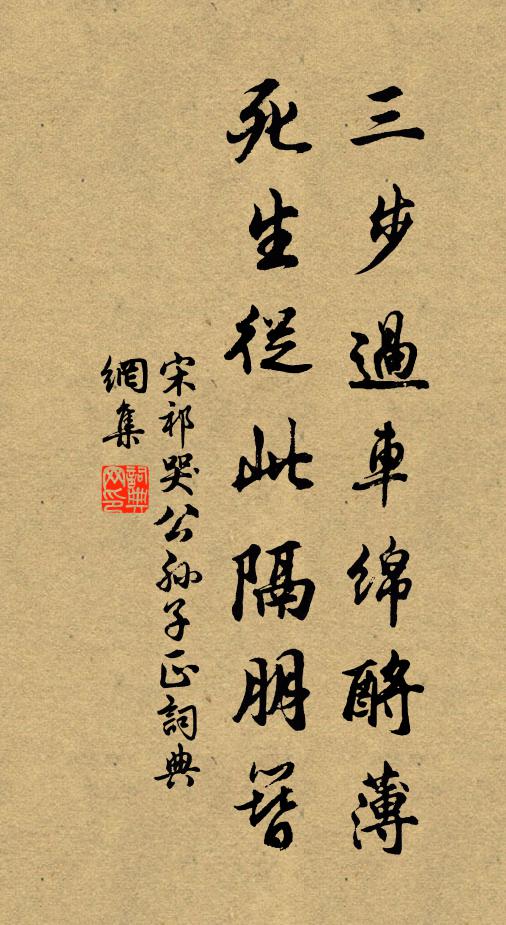 三步過車綿酹薄
死生從此隔朋簪
宋祁哭公孫子正詞典
網集
詞典
网印